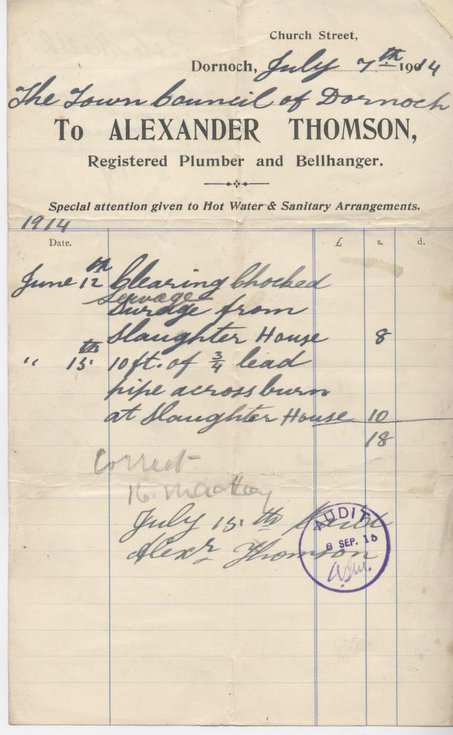 Church Street,
Dornoch, July 7th 1914
The Town Council of Dornoch
To ALEXANDER THOMSON,
Registered Plumber and Bellhanger.
Special attention given to Hot Water & Sanitary Arrangements.
1914
Date. £ s. d.
June 12th Clearing Chocked
sewage
Surage from
Slaughter House 8
" 15th 10 ft. of 3/4 lead
pipe across burn
at Slaughter House 10
18
Correct
July 15th
Alexr Thomson
AUDIT
8 SEP. 15